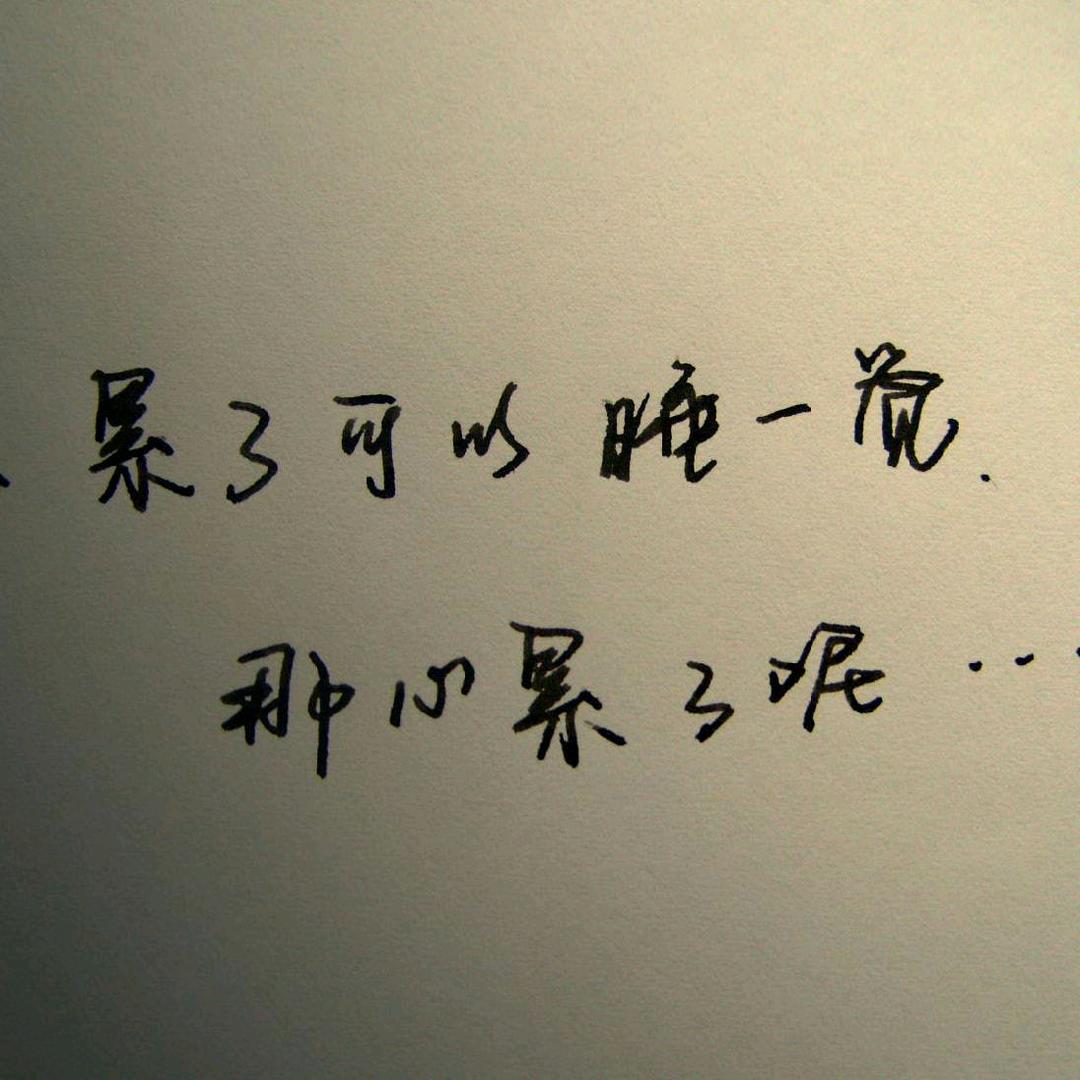 累了可以睡一觉.
那心累了呢...